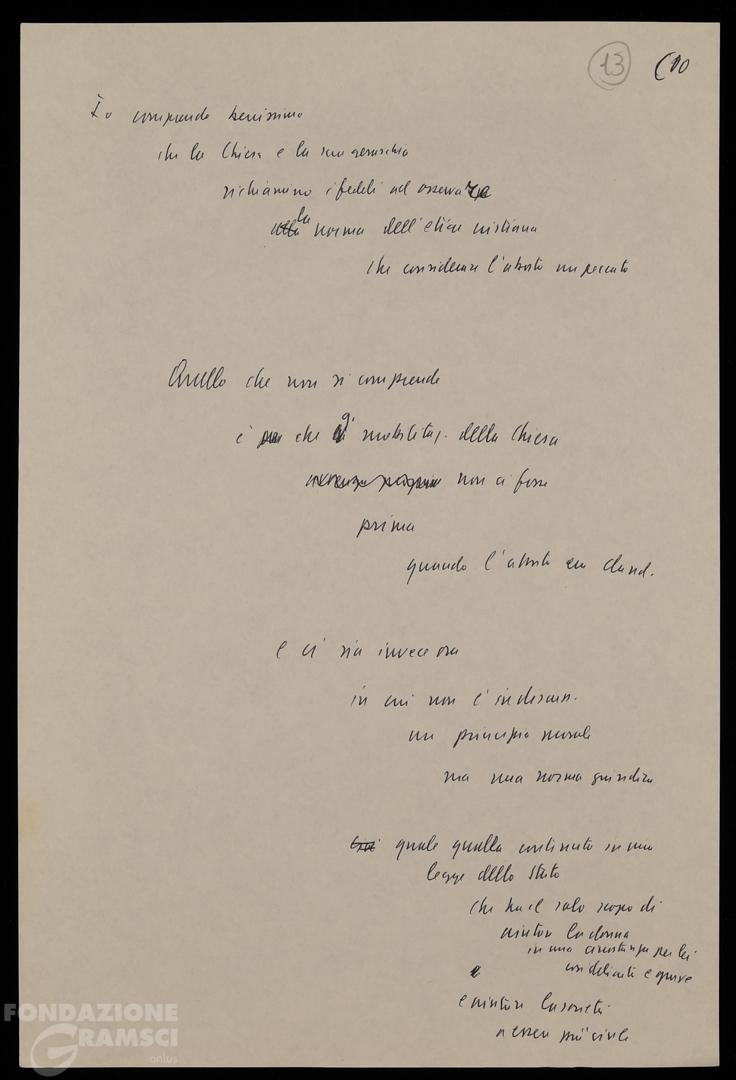 13 (10
Io comprendo benissimo
che la Chiesa e la sua gerarchia
richiamino i fedeli ad osservare
alla la norma dell'etica cristiana
che considera l'aborto un peccato
Quello che non si comprende
è che mobilitaz. della Chiesa
non ci fosse
prima
quando l'aborto era cland.
e ci sia invece ora
in cui non è in discuss.
un principio morale
ma una norma giuridica
quale quella contenuta in una
legge dello Stato
che ha il solo scopo di
aiutare la donna
in una circostanza per lei
così delicata e grave
e
e aiutare la società
a essere più civile
FONDAZIONE
GRAMSCI
onlus